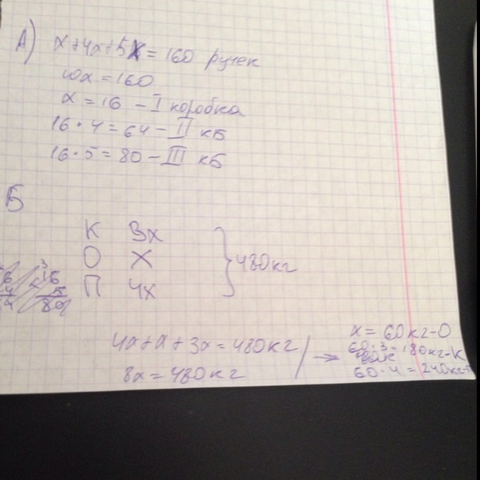 А) x+4x+5x=160 ручек
10x=160
x=16 - I коробка
16·4=64 - II кб
16·5=80 - III кб
Б
К 3x
О x
П 4x
}480кг
4x+x+3x=480кг
8x=480кг
→ x=60кг-О
60·3=180кг-К
60·4=240кг-